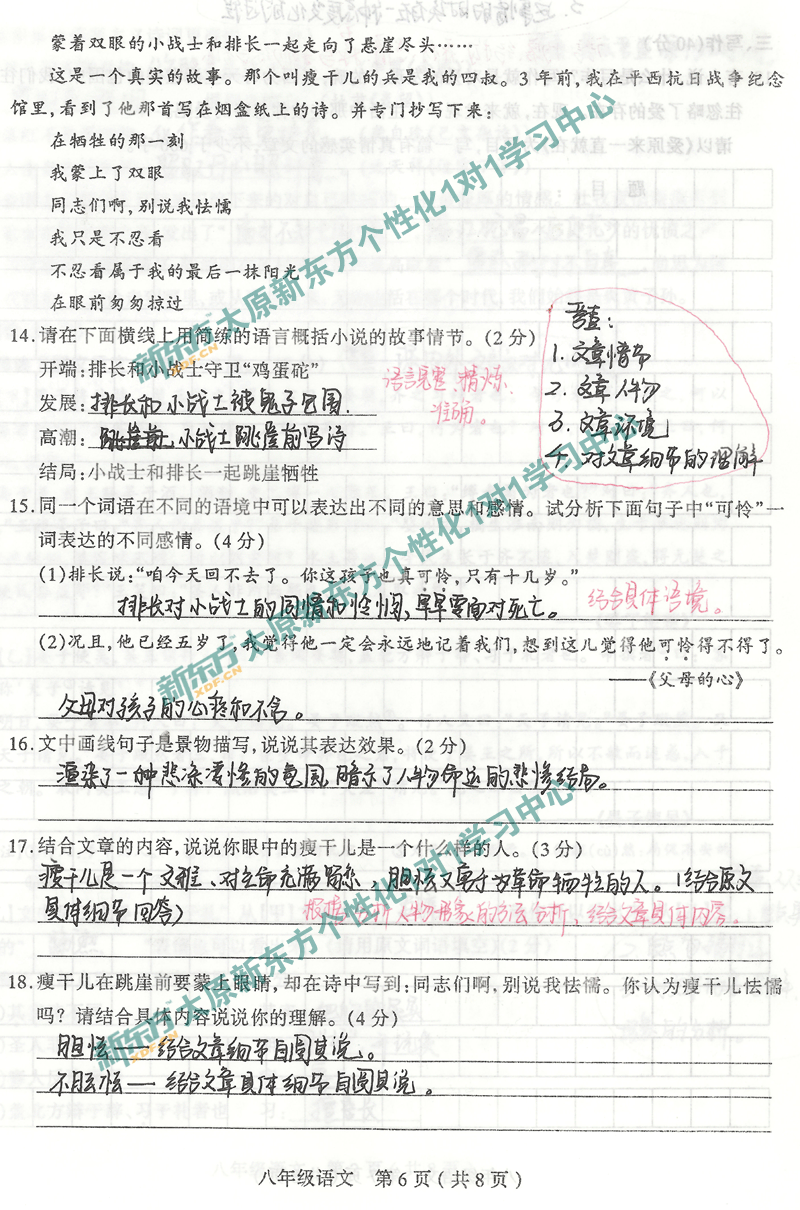 蒙着双眼的小战士和排长一起走向了悬崖尽头……
这是一个真实的故事。那个叫瘦干儿的兵是我的四叔。3年前,我在平西抗日战争纪念
馆里,看到了他那首写在烟盒纸上的诗。并专门抄写下来:
在牺牲的那一刻
我蒙上了双眼
同志们啊,别说我怯懦
我只是不忍看
不忍看属于我的最后一抹阳光
在眼前匆匆掠过
14.请在下面横线上用简练的语言概括小说的故事情节。(2分)
开端:排长和小战士守卫“鸡蛋砣”
发展:排长和小战士被鬼子包围.
高潮:小战士跳崖前写诗
结局:小战士和排长一起跳崖牺牲
语言完整、精炼、
准确。
考查:
1. 文章情节
2. 文章人物
3. 文章环境
4. 对文章细节的理解
15.同一个词语在不同的语境中可以表达出不同的意思和感情。试分析下面句子中“可怜”一
词表达的不同感情。(4分)
(1)排长说:“咱今天回不去了。你这孩子也真可怜,只有十几岁。”
排长对小战士的同情和怜悯,早早要面对死亡。
结合具体语境。
(2)况且,他已经五岁了,我觉得他一定会永远地记着我们,想到这儿觉得他可怜得不得了。
——《父母的心》
父母对孩子的心疼和不舍。
16.文中画线句子是景物描写,说说其表达效果。(2分)
渲染了一种悲凉凄惨的氛围,暗示了人物命运的悲惨结局。
17.结合文章的内容,说说你眼中的瘦干儿是一个什么样的人。(3分)
瘦干儿是一个文雅、对生命充满留恋、胆怯又勇于为革命牺牲的人。(结合原文
具体细节回答)
根据分析人物形象的方法分析,结合文章具体内容。
18.瘦干儿在跳崖前要蒙上眼睛,却在诗中写到:同志们啊,别说我怯懦。你认为瘦干儿怯懦
吗？请结合具体内容说说你的理解。(4分)
胆怯——结合文章细节自圆其说。
不胆怯——结合文章具体细节自圆其说。
八年级语文 第6页(共8页)
新东方太原新东方个性化1对1学习中心
XDF.CN
新东方太原新东方个性化1对1学习中心
XDF.CN
新东方太原新东方个性化1对1学习中心
XDF.CN